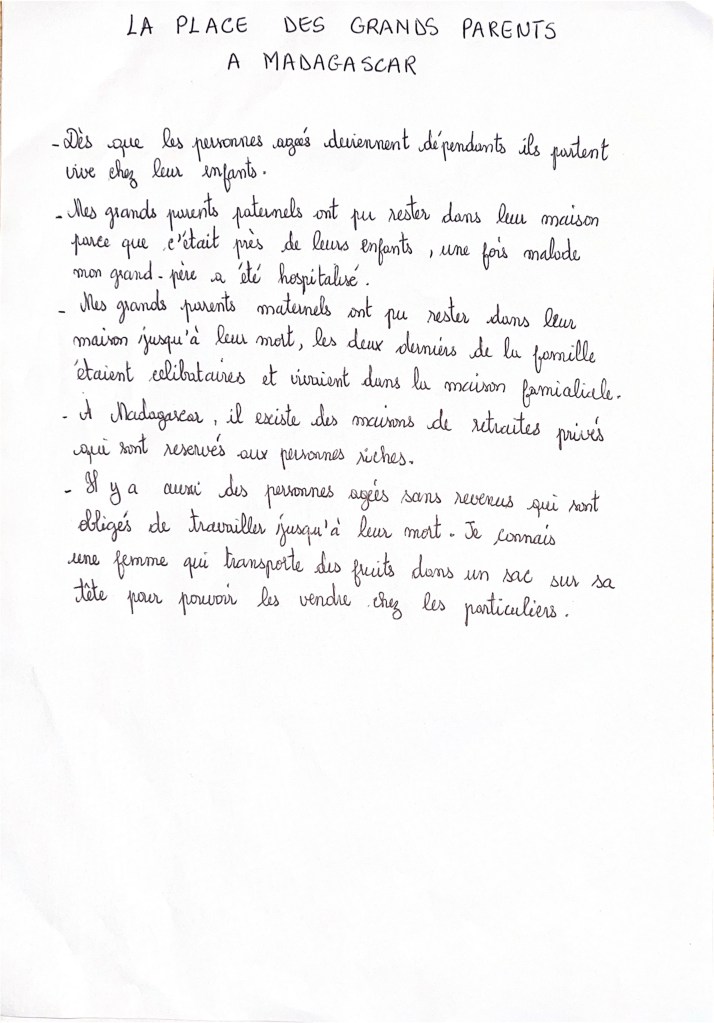 LA PLACE DES GRANDS PARENTS
A MADAGASCAR
- Dès que les personnes agées deviennent dépendants ils partent
vive chez leur enfants.
- Mes grands parents paternels ont pu rester dans leur maison
parce que c'était près de leurs enfants, une fois malade
mon grand-père a été hospitalisé.
- Mes grands parents maternels ont pu rester dans leur
maison jusqu'à leur mort, les deux derniers de la famille
étaient celibataires et vivaient dans la maison famialiale.
- À Madagascar, il existe des maisons de retraites privés
qui sont reservés aux personnes riches.
- Il y a aussi des personnes agées sans revenus qui sont
obligés de travailler jusqu'à leur mort. Je connais
une femme qui transporte des fruits dans un sac sur sa
tête pour pouvoir les vendre chez les particuliers.